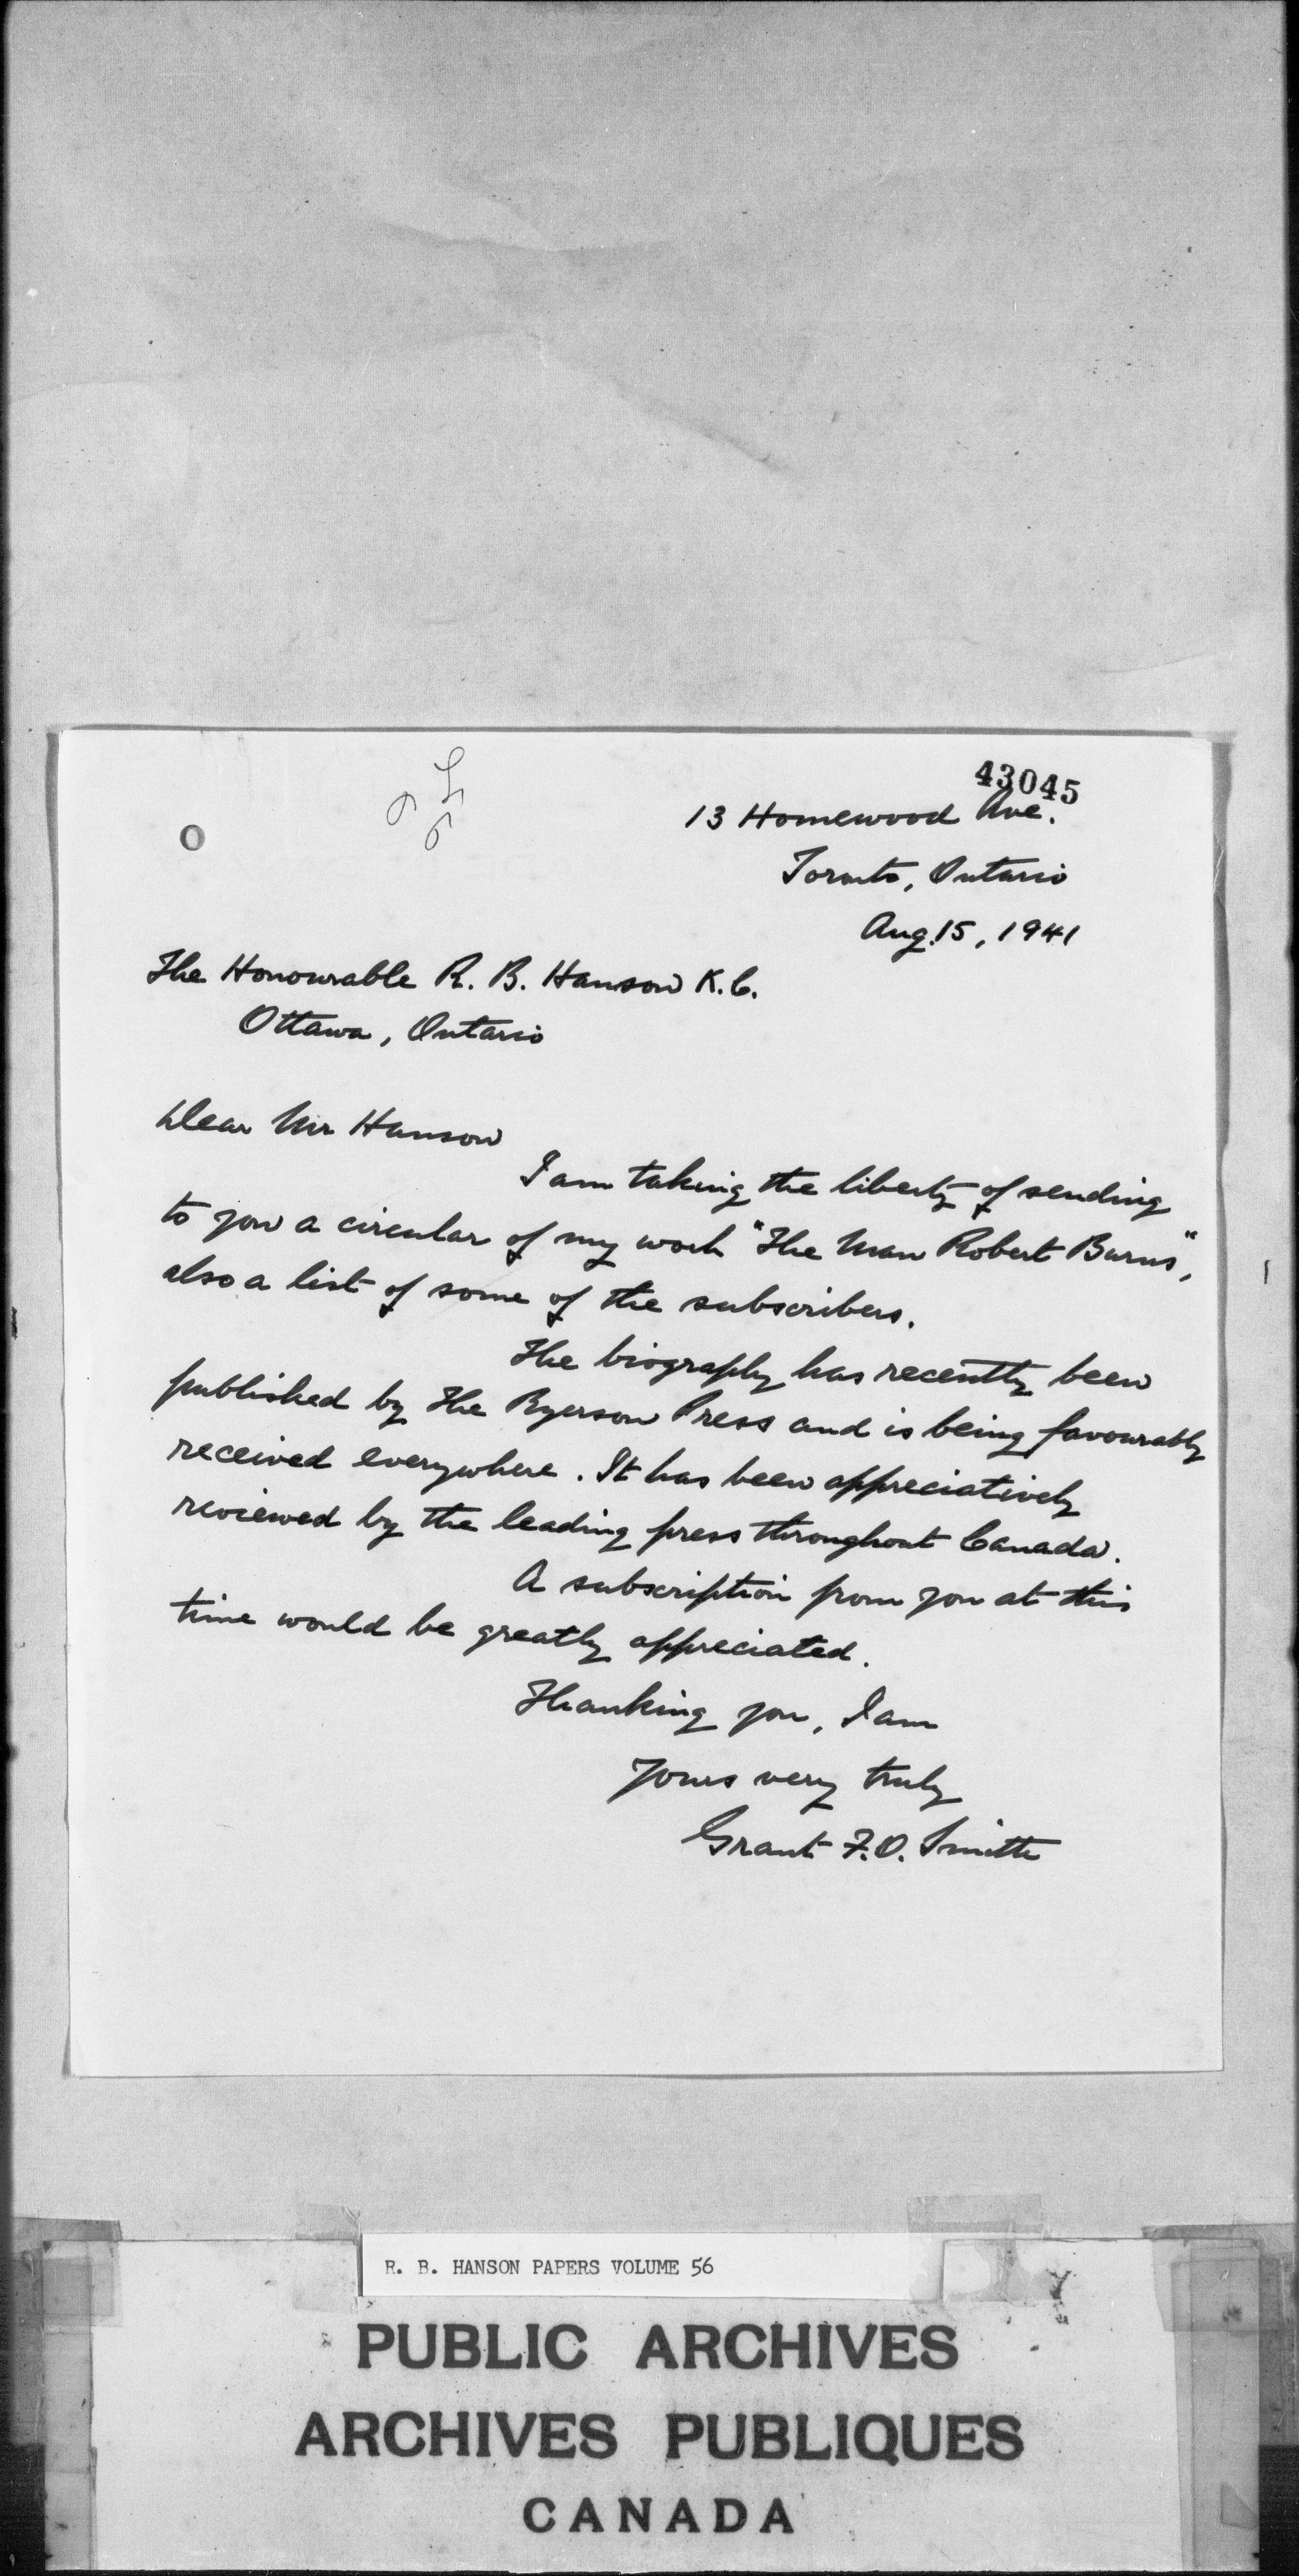 43045
13 Homewood Ave.
Toronto, Ontario
Aug. 15, 1941
The Honourable R. B. Hanson K.C.
Ottawa, Ontario
Dear Mr Hanson
I am taking the liberty of sending
to you a circular of my work "The Man Robert Burns",
also a list of some of the subscribers.
The biography has recently been
published by The Ryerson Press and is being favourably
received everywhere. It has been appreciatively
reviewed by the leading press throughout Canada.
A subscription from you at this
time would be greatly appreciated.
Thanking you, I am
Yours very truly
Grant F.O. Smith
R. B. HANSON PAPERS VOLUME 56
PUBLIC ARCHIVES
ARCHIVES PUBLIQUES
CANADA